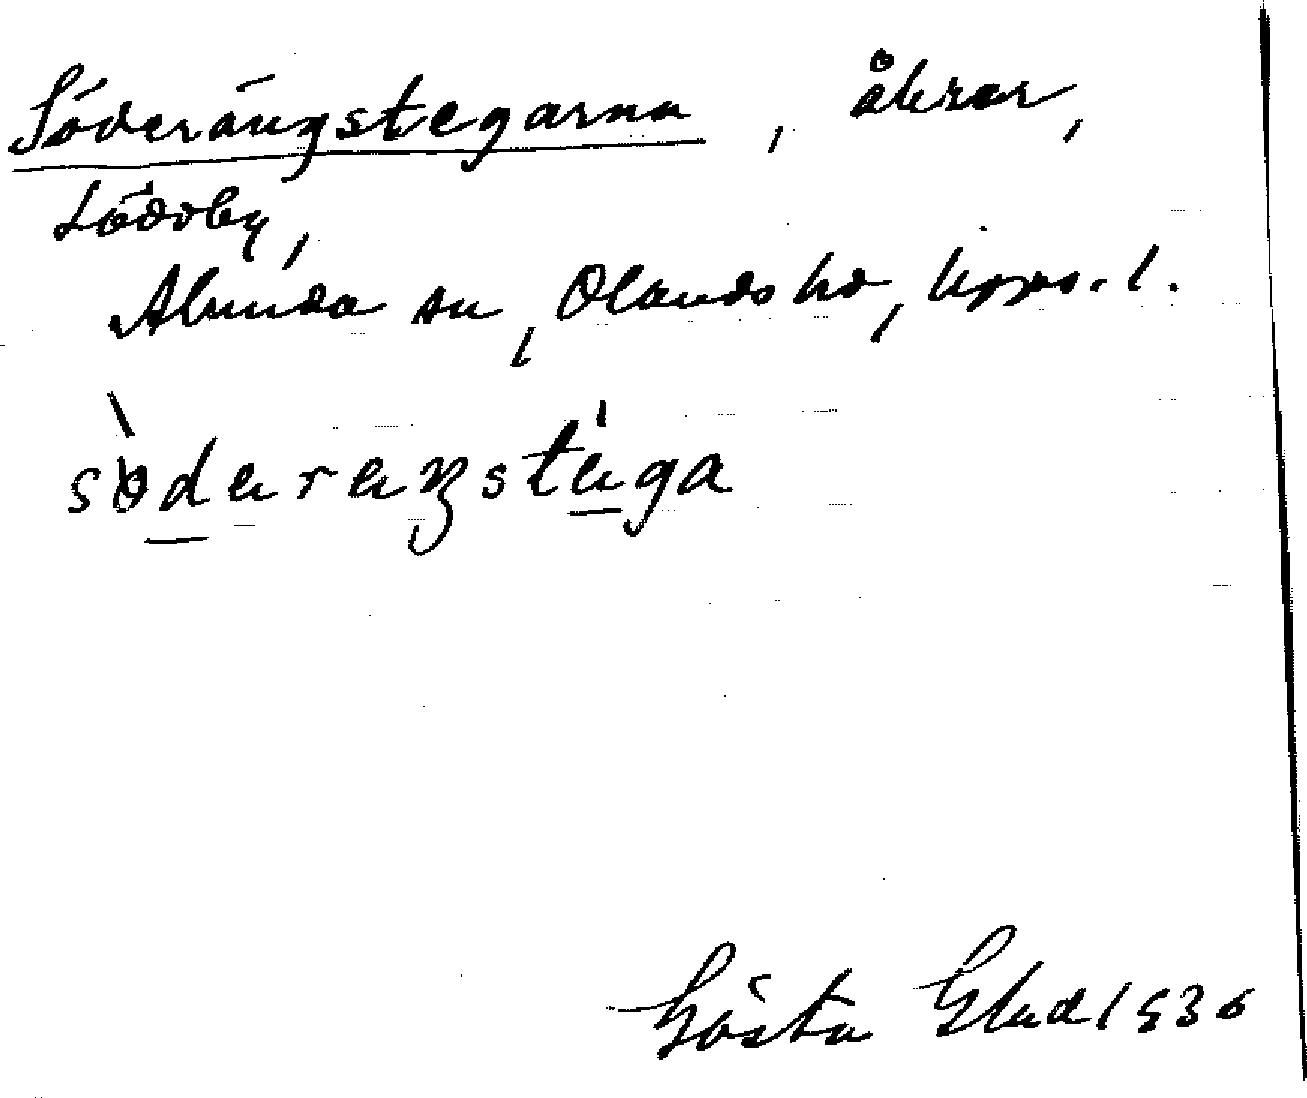 Söderängstegarna, åkrar,
Löddby,
Alunda sn, Olands hd, Upps. l.
sòdaraŋstága
Gösta Glad 1936